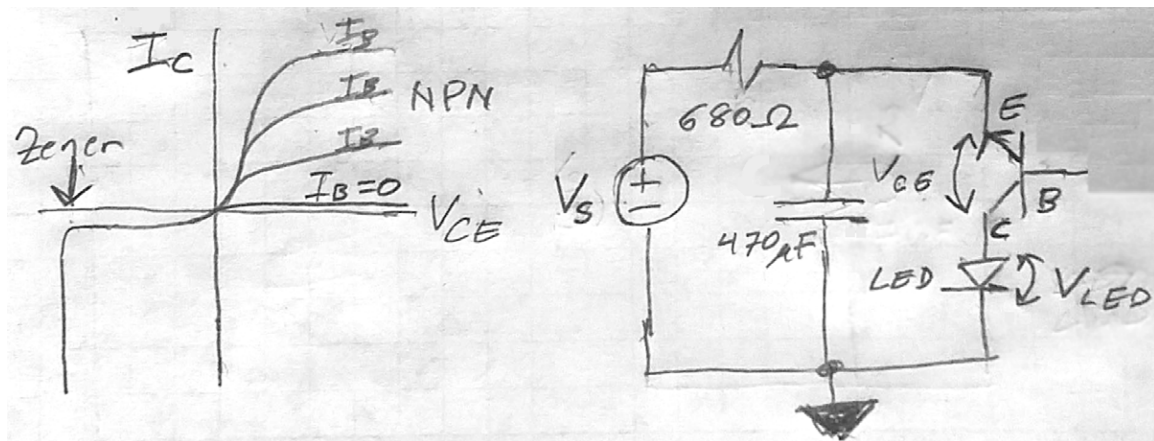 I_C
I_B
I_B
NPN
I_B
I_B=0
Zener
V_CE
680Ω
V_S
+
−
470μF
E
V_CE
B
C
LED
V_LED